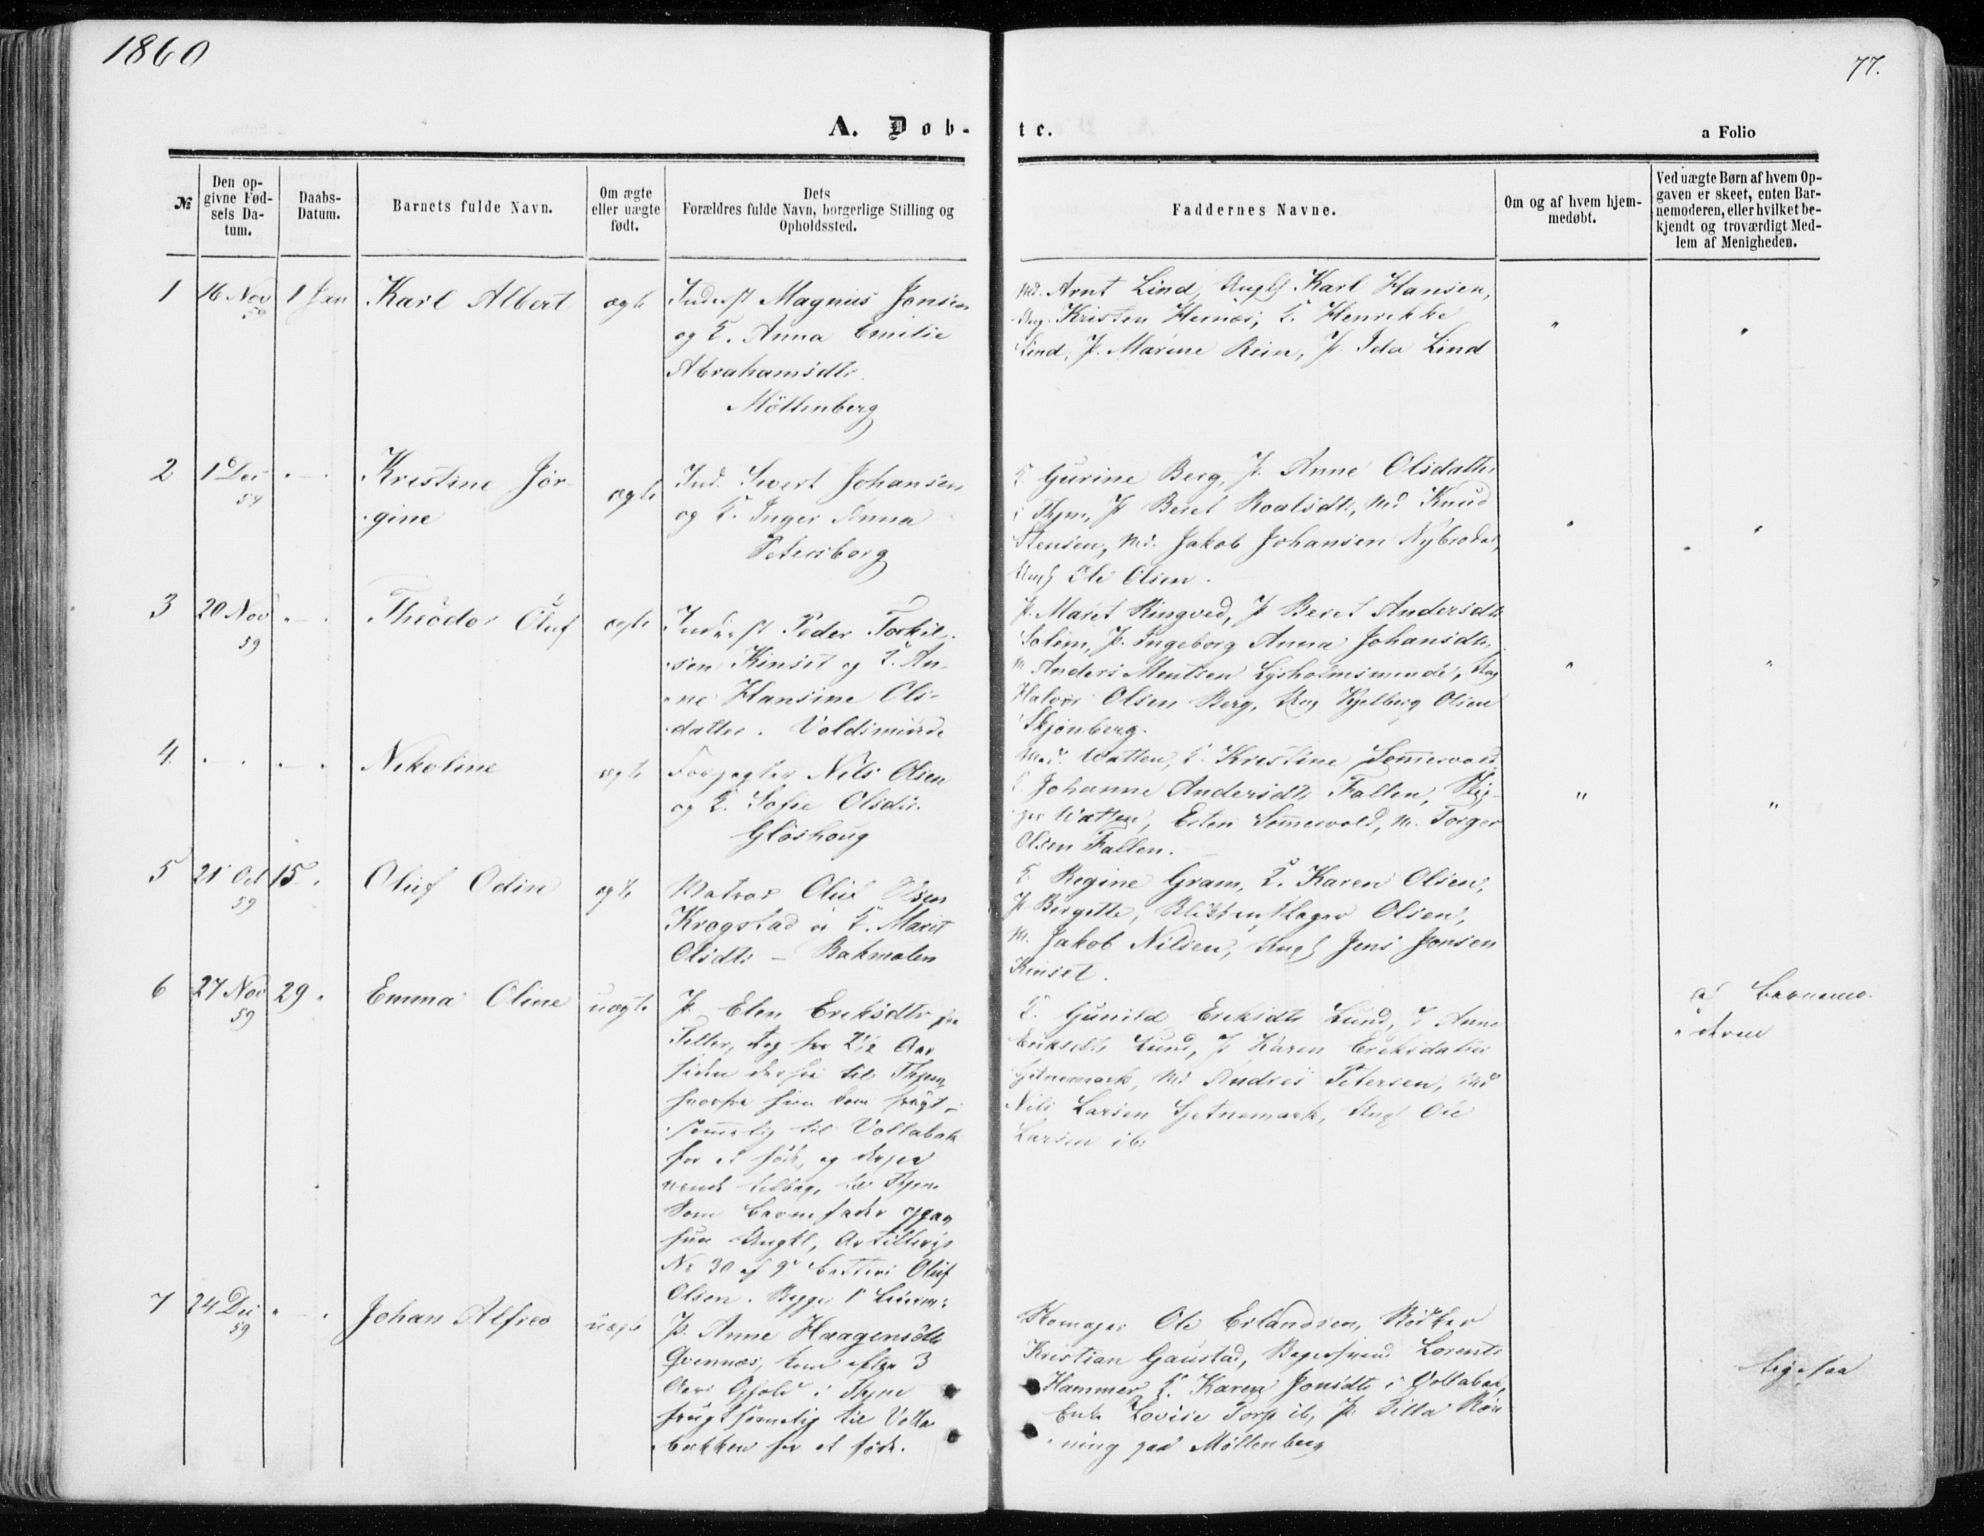 1860
77.
A. Dob-
te.
a Folio
№
Den op-
givne Fød-
sels Da-
tum.
Daabs-
Datum.
Barnets fulde Navn.
Om ægte
eller uægte
født.
Dets
Forældres fulde Navn, borgerlige Stilling og
Opholdssted.
Faddernes Navne.
Om og af hvem hjem-
medøbt.
Ved uægte Børn af hvem Op-
gaven er skeet, enten Bar-
nemoderen, eller hvilket be-
kjendt og troværdigt Med-
lem af Menigheden.
1 16 Nov 1 Jan Karl Albert ægte
Inderst Magnus Jonsen
og E. Anna Emilie
Abrahamsdtr.
Möllenberg
Md. Arnt Lind, Ungk Karl Hansen,
Ung. Kristen Hernæs, E. Henrikke
Lind, P. Marine Rein, P. Ida Lind
" "
2 1 Dec 59 " - Kristine Jør-
gine
ægte
Ind. Sivert Johansen
og E. Inger Anna
Petersborg
E Gurine Berg, P. Anne Olsdatter
i Thjem, P Beret Roaldsdtr, Md Knud
Stensen, Md. Jakob Johansen Nybrodal,
Ungk Ole Olsen.
" "
3 20 Nov 59 " - Theodor Oluf ægte
Inderst Peder Torkil-
sen Kinset og E. An-
ne Hansine Ols-
datter. Voldsminde
P. Maret Ringved, P Beret Andersdtr
Solem, P. Ingeborg Anna Johansdtr,
M Anders Mentsen Lysholmsminde, Ung
Halvor Olsen Berg, Ung Kjelberg Olsen
Skjønberg.
" "
4. " - " - Nikoline ægte
Forpagter Nils Olsen
og E. Sofie Olsdtr.
Gløshoug
Mad. Watten, E. Kristine Sommervold,
E Johanne Andersdtr Fallen, Skip-
per Watten, Esten Sommervold, M. Torger
Olsen Fallen.
" "
5 21 Oct 59 15 " Oluf Odin ægte
Matros Oluf Olsen
Krogstad og E. Marit
Olsdtr - Bakmolen
E. Regine Gram, E. Karen Olsen,
P Bergette, Blikkenslager Olsen,
M. Jakob Nilsen, Ungk Jens Jonsen
Kinset.
6 27 Nov 59 29 " Emma Oline uægte
P. Elen Eriksdtr fra
Tiller, tog for 2½ Aar
siden derfra til Thjem,
hvorfra hun kom frugt-
sommelig til Vollabak
for at føde, og derpaa
vendt tilbage til Thjem
Som Barnefader opgav
hun Ungkl, Artillerist
No 30 af 9de Batteri Oluf
Olsen. Begges 1ste Leierm:
E. Gunild Eriksdtr Lund, P Anne
Eriksdtr Lund, P Karen Eriksdatter
Gjetnemark, Md Andreas Petersen, Md
Nils Larsen Gjetnemark, Ungk Ole
Larsen ib:
af Barnemo-
deren
7 24 Dec 59 " - Johan Alfred uægte
P. Anne Haagensdtr
Qvennæs, kom efter 3
Aars Ophold i Thjem
frugtsommelig til Volla-
bakken for at føde.
Skomager Ole Erlandsen, Bødker
Kristian Gaustad, Bagersvend Lorents
Hammer E. Karen Jonsdtr i Vollabak,
Enke Lovise Torp ib, P. Tilla Røn-
ning paa Möllenberg
ligesaa